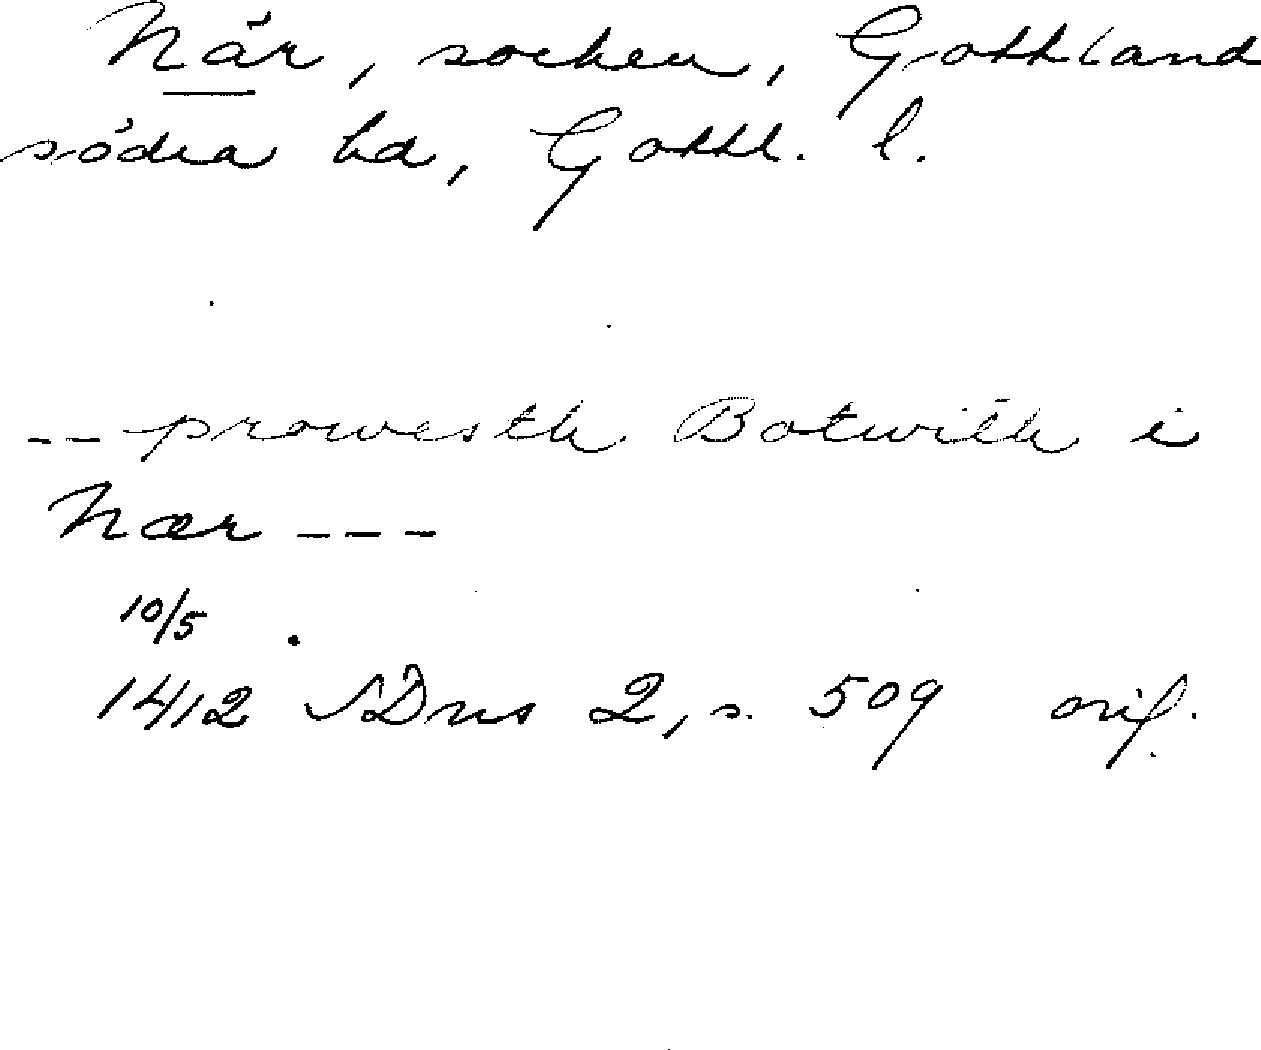 När, socken, Gottland
södra hd, Gottl. l.
-- prowesth Botwith i
Nær ---
10/5 .
1412 SDns 2, s. 509 orig.